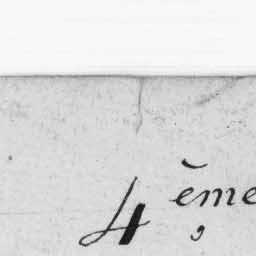 4 ème